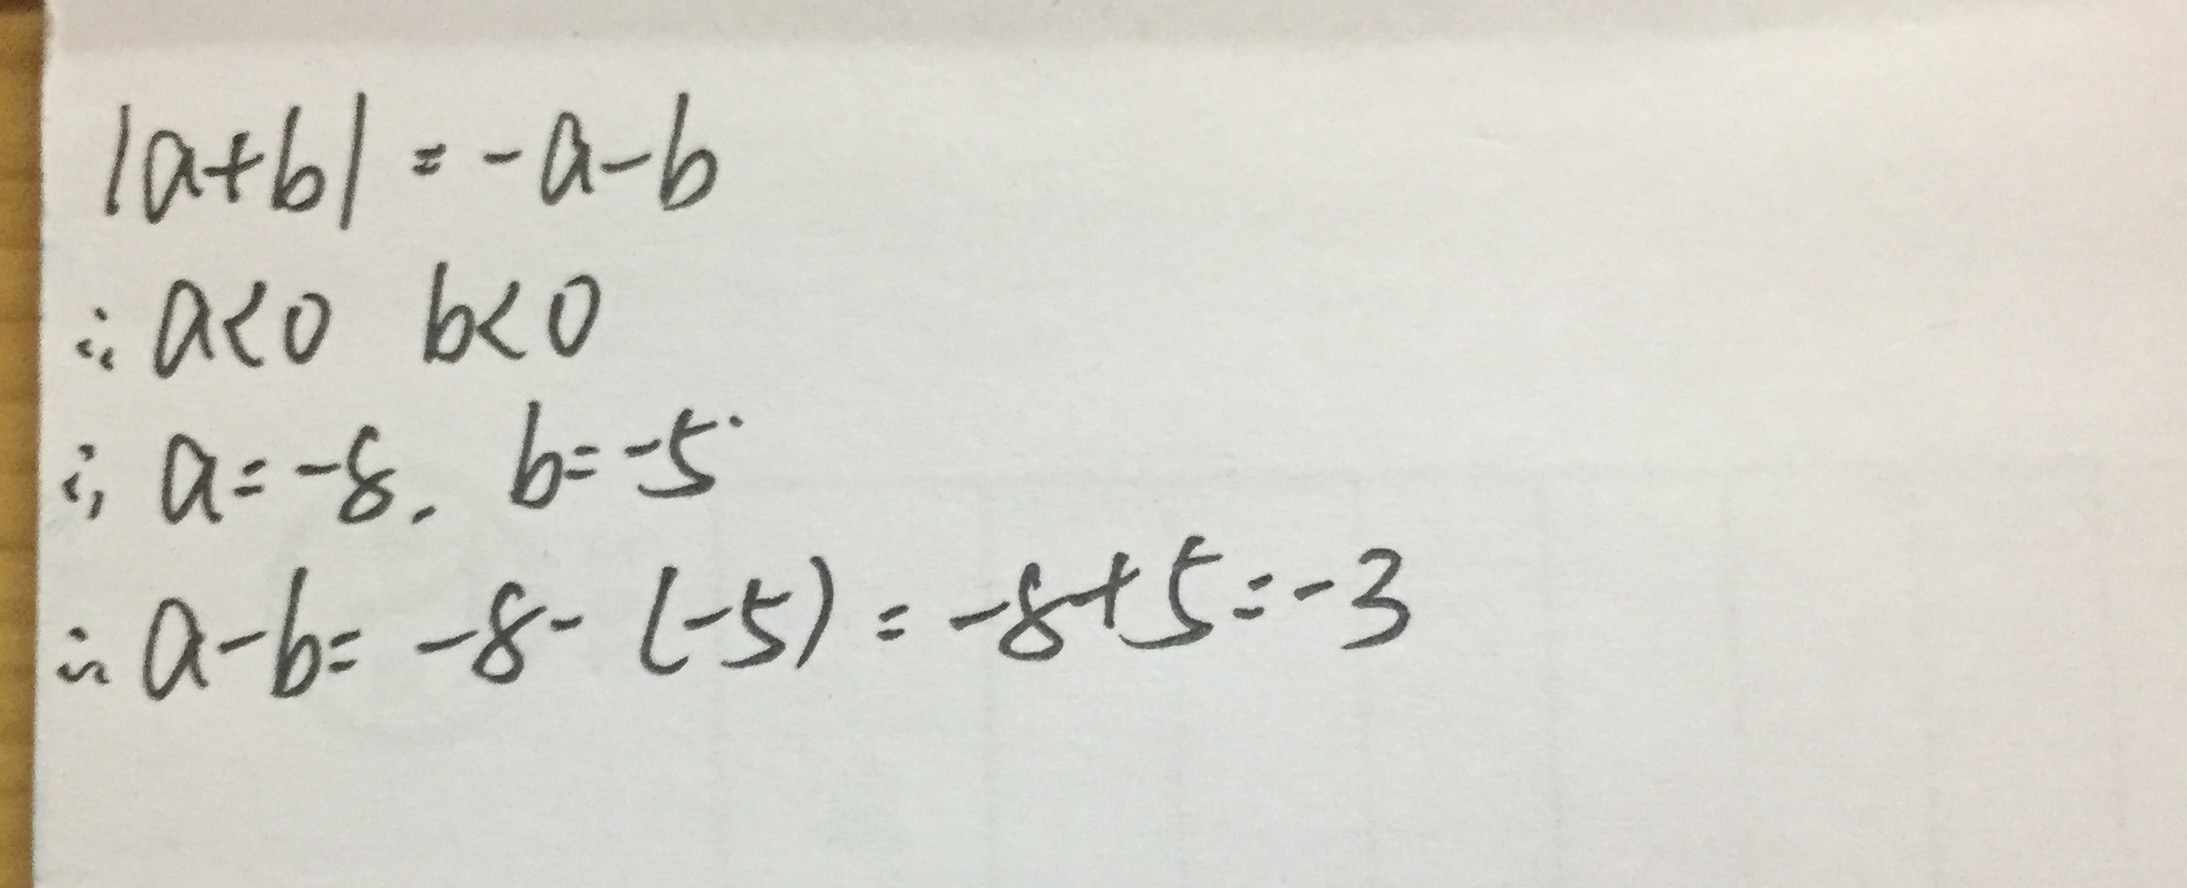 |a+b| = -a-b
∴ a<0 b<0
∴ a=-8. b=-5
∴ a-b= -8-(-5) = -8+5=-3